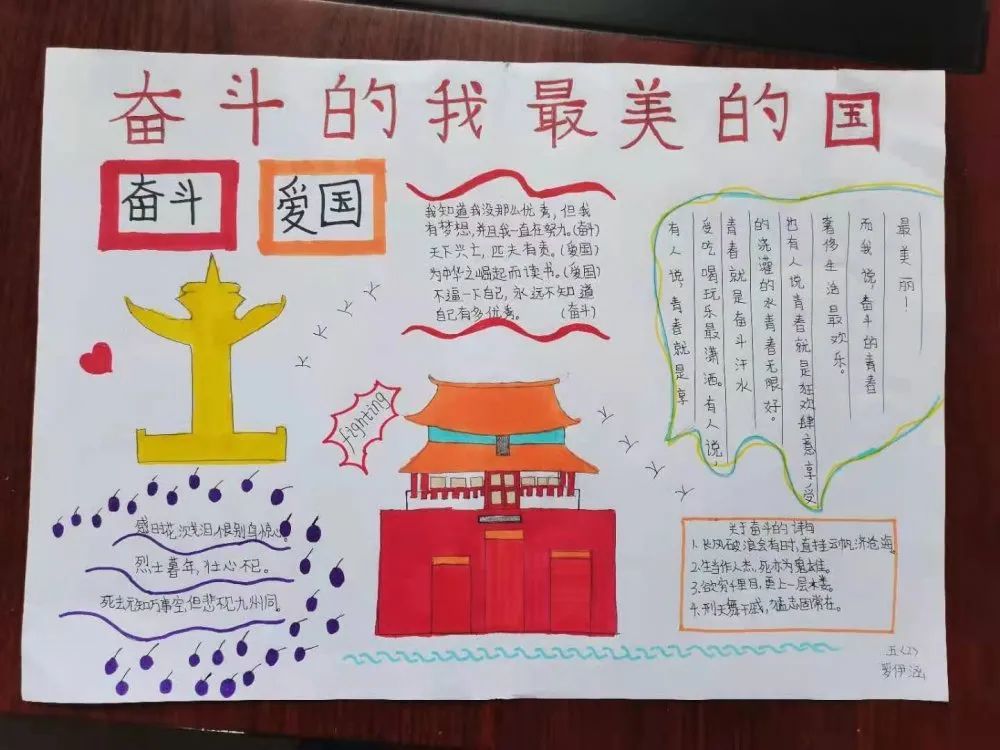 奋斗的我最美的国
奋斗
爱国
我知道我没那么优秀，但我
有梦想，并且我一直在努力。(奋斗)
天下兴亡，匹夫有责。(爱国)
为中华之崛起而读书。(爱国)
不逼一下自己，永远不知道
自己有多优秀。 (奋斗)
有人说，青春就是享
受吃喝玩乐最潇洒。有人说，
青春就是奋斗汗水
的浇灌的水青春无限好。
也有人说青春就是狂欢肆意享受
奢侈生活最欢乐。
而我说，奋斗的青春
最美丽！
fighting
感时花溅泪恨别鸟惊心
烈士暮年，壮心不已。
死去元知万事空，但悲不见九州同。
关于奋斗的诗句
1.长风破浪会有时，直挂云帆济沧海。
2.生当作人杰，死亦为鬼雄。
3.欲穷千里目，更上一层楼。
4.刑天舞干戚，猛志固常在。
五(2)
罗伊涵